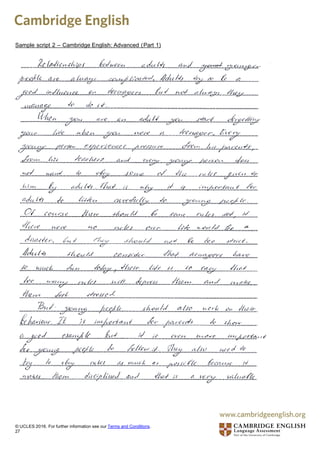 Cambridge English
Sample script 2 – Cambridge English: Advanced (Part 1)
Relationships between adults and younger
people are always complicated. Adults try to be a
good influence on teenagers but not always they
manage to do it.
When you are an adult you start forgetting
your life when you were a teenager. Every
young person experiences pressure from his parents,
from his teachers and every young person does
not want to obey some of the rules given to
him by adults. That is why it is important for
adults to listen carefully to young people.
Of course there should be some rules as, if
there were no rules our life would be a
disaster, but they should not be too strict.
Adults should consider that teenagers have
to much fun today, their life is so easy that
too many rules will depress them and make
them feel stressed.
But young people should also work on their
behaviour. It is important for parents to show
a good example but it is even more important
for young people to follow it. They also need to
try to obey rules as much as possible because it
makes them disciplined and that is a very valuable
www.cambridgeenglish.org
© UCLES 2016. For further information see our Terms and Conditions.
27
CAMBRIDGE ENGLISH
Language Assessment
Part of the University of Cambridge